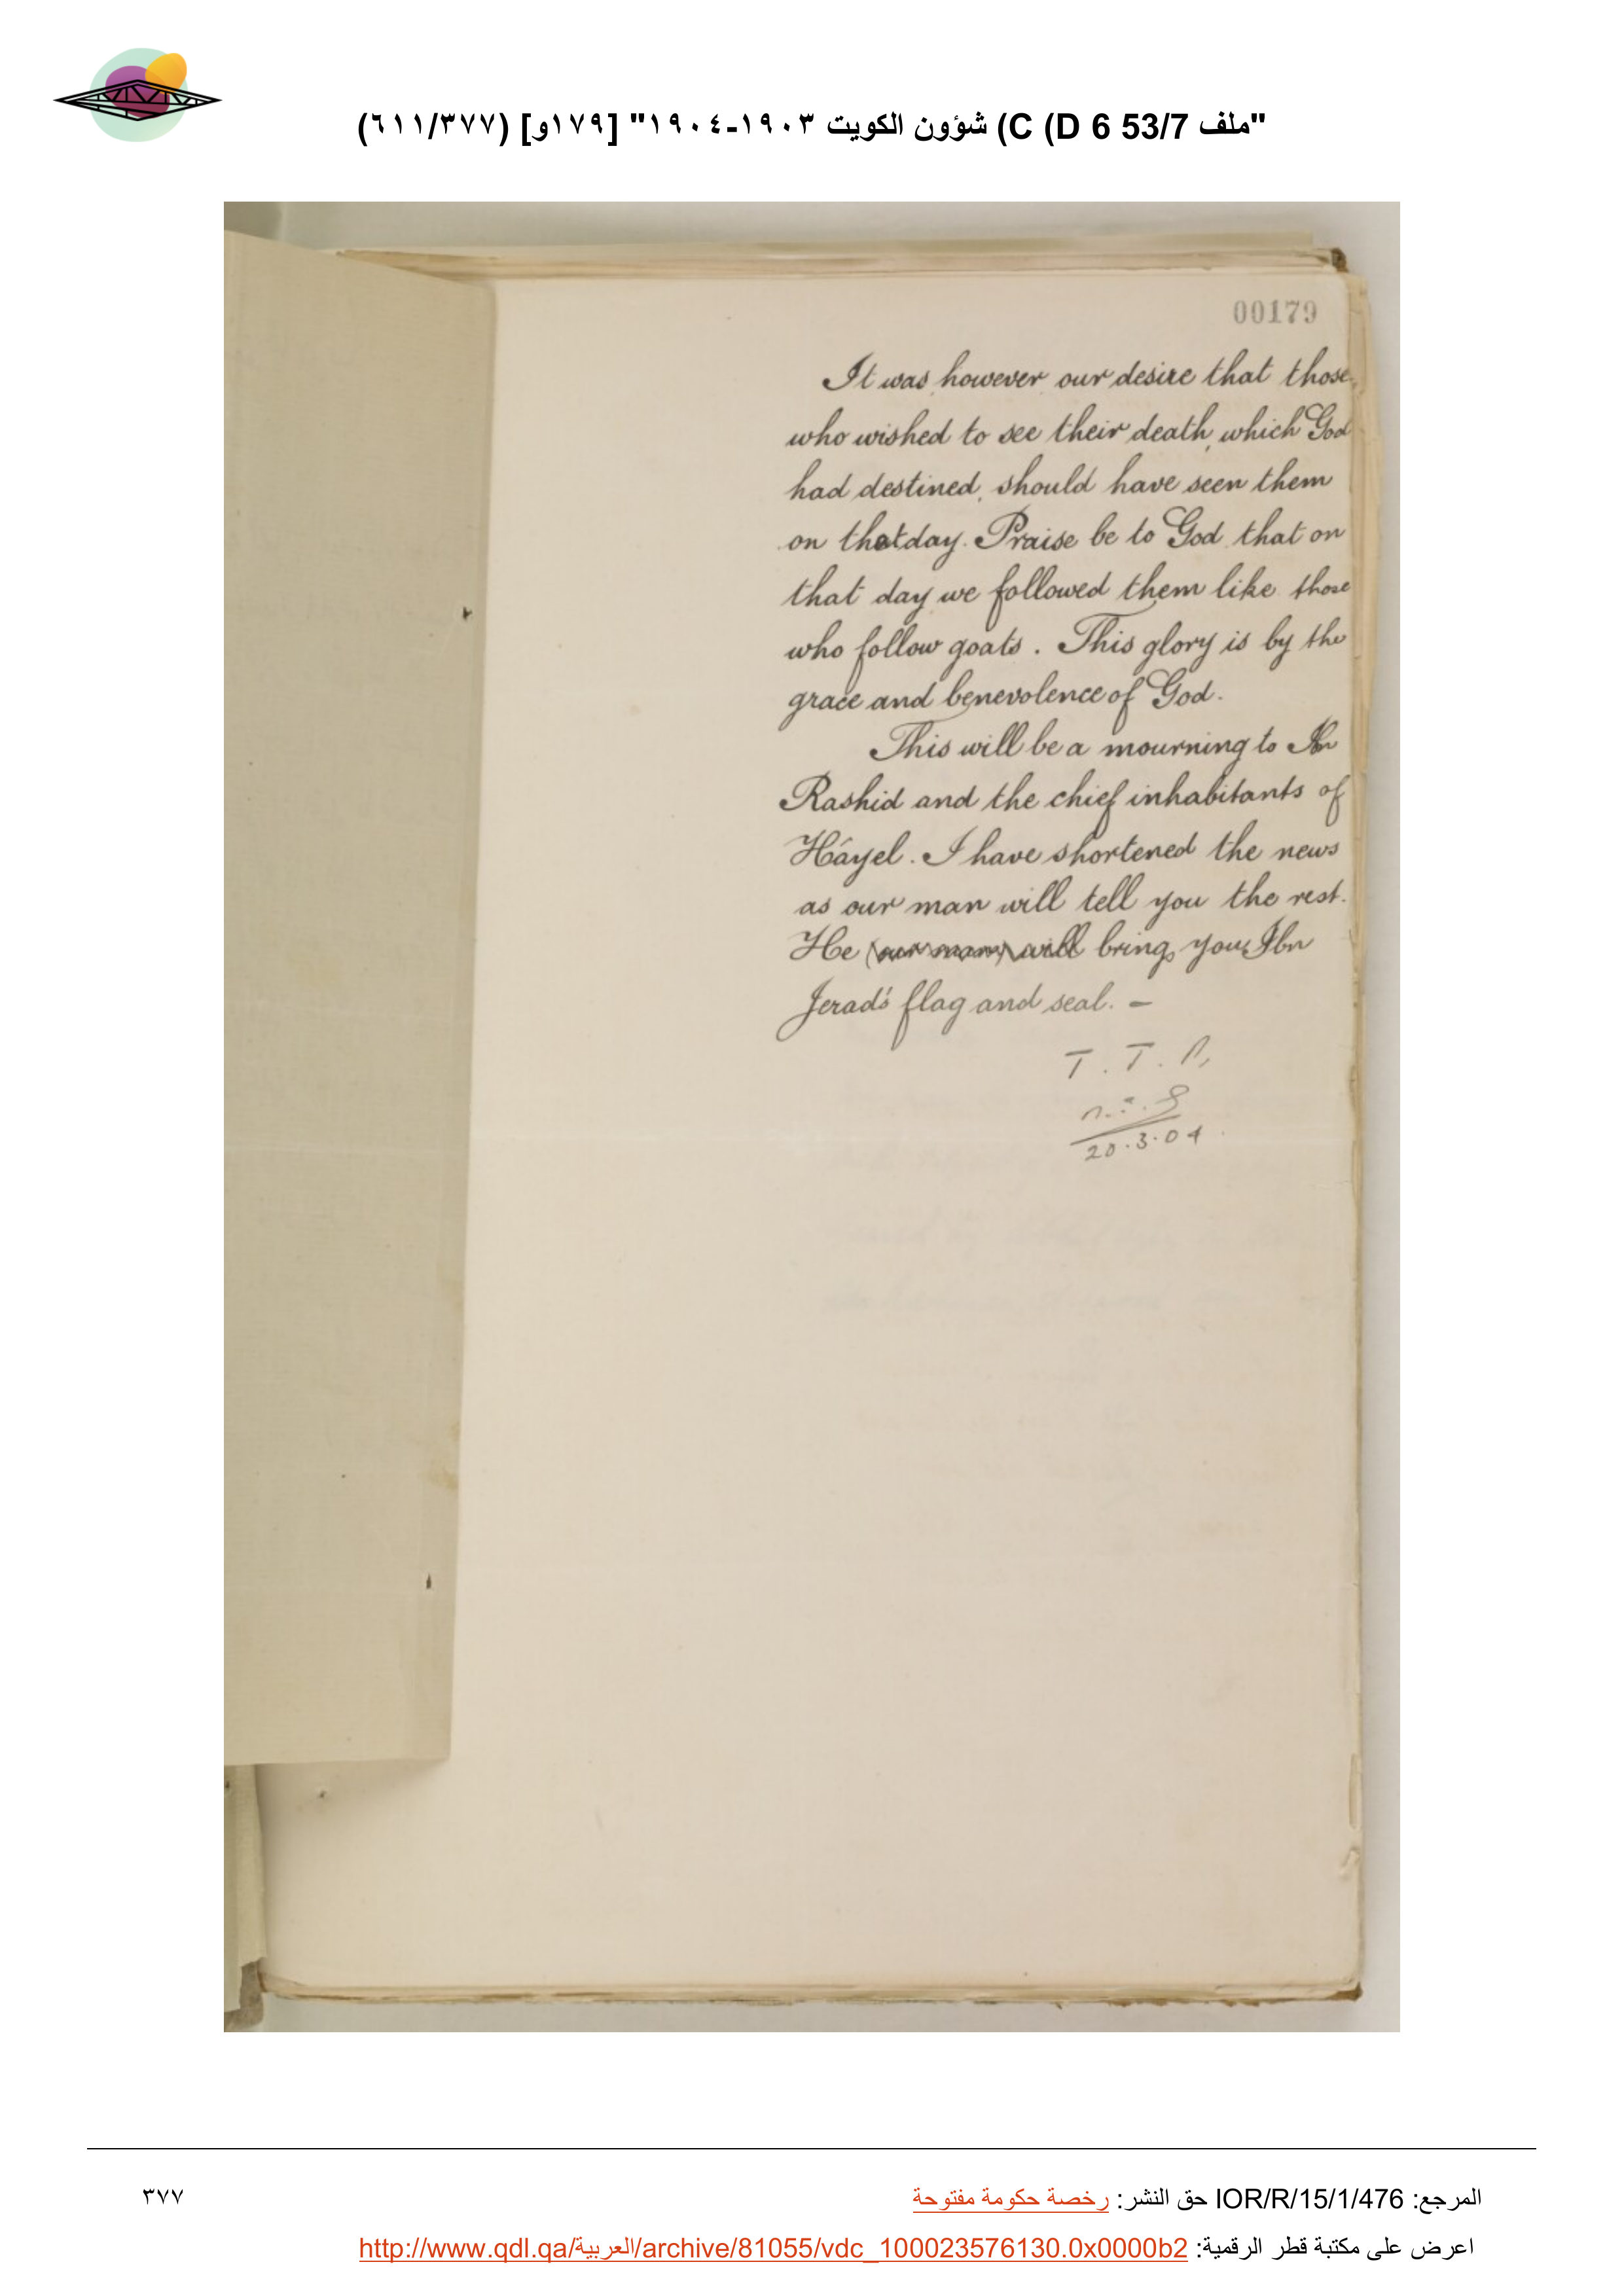 "ملف 53/7 D 6) C) شؤون الكويت ١٩٠٣-١٩٠٤" [١٧٩و] (٦١١/٣٧٧)
00179
It was however our desire that those
who wished to see their death, which God
had destined, should have seen them
on that day. Praise be to God that on
that day we followed them like those
who follow goats. This glory is by the
grace and benevolence of God.
This will be a mourning to Ibn
Rashid and the chief inhabitants of
Hâyel. I have shortened the news
as our man will tell you the rest.
He (our man) will bring you Ibn
Jerad's flag and seal. —
T. T.
20.3.04
المرجع: IOR/R/15/1/476 حق النشر: رخصة حكومة مفتوحة
٣٧٧
اعرض على مكتبة قطر الرقمية: http://www.qdl.qa/العربية/archive/81055/vdc_100023576130.0x0000b2